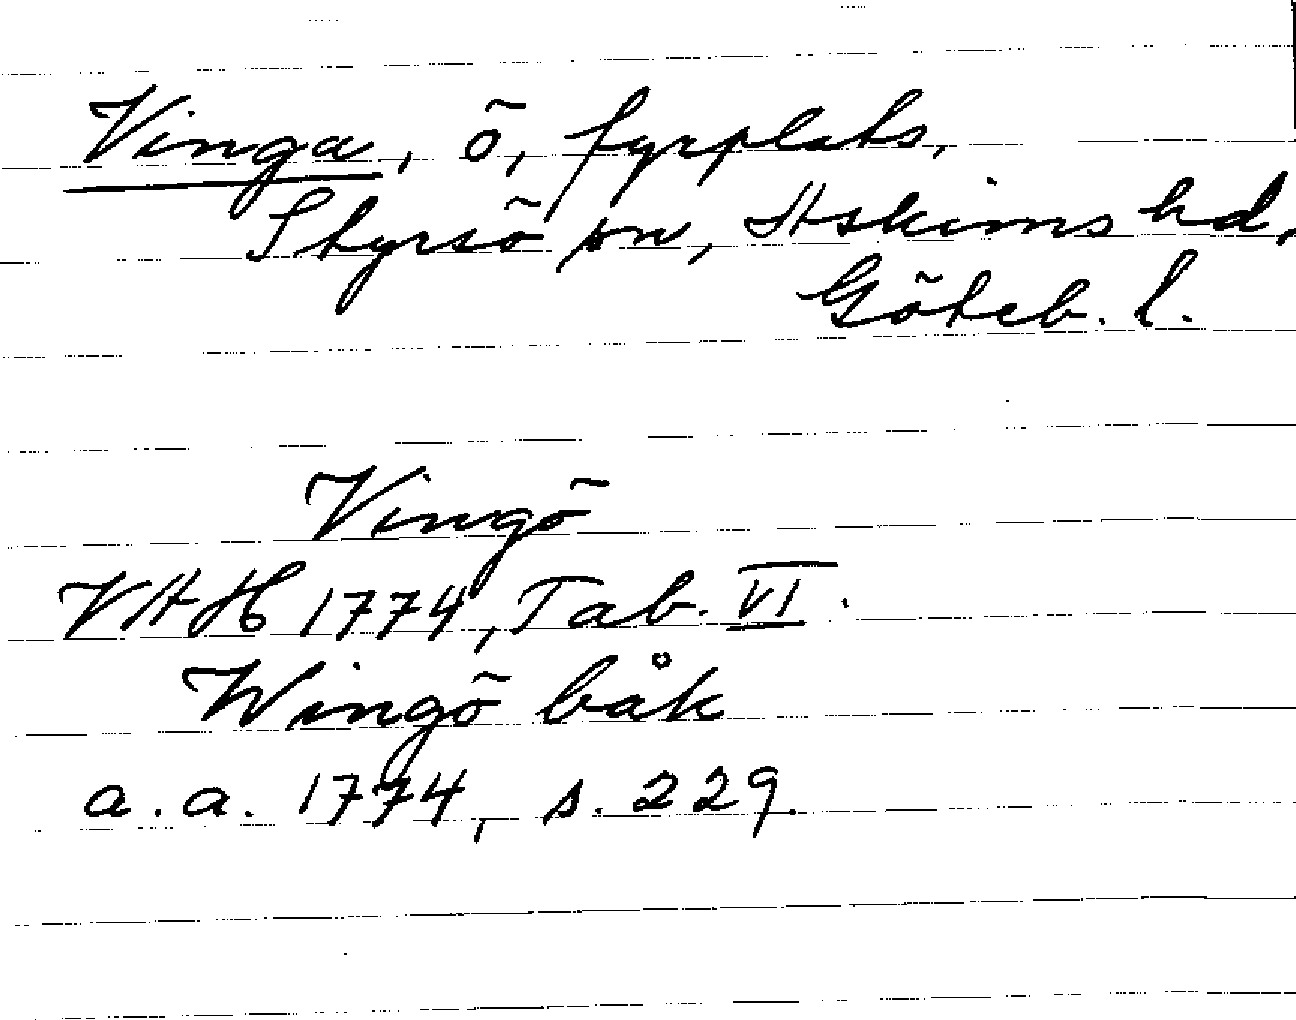 Vinga, ö, fyrplats,
Styrsö sn, Askims hd,
Göteb. l.
Vingö
VAH 1774, Tab. VI.
Wingö båk
a.a. 1774, s. 229.